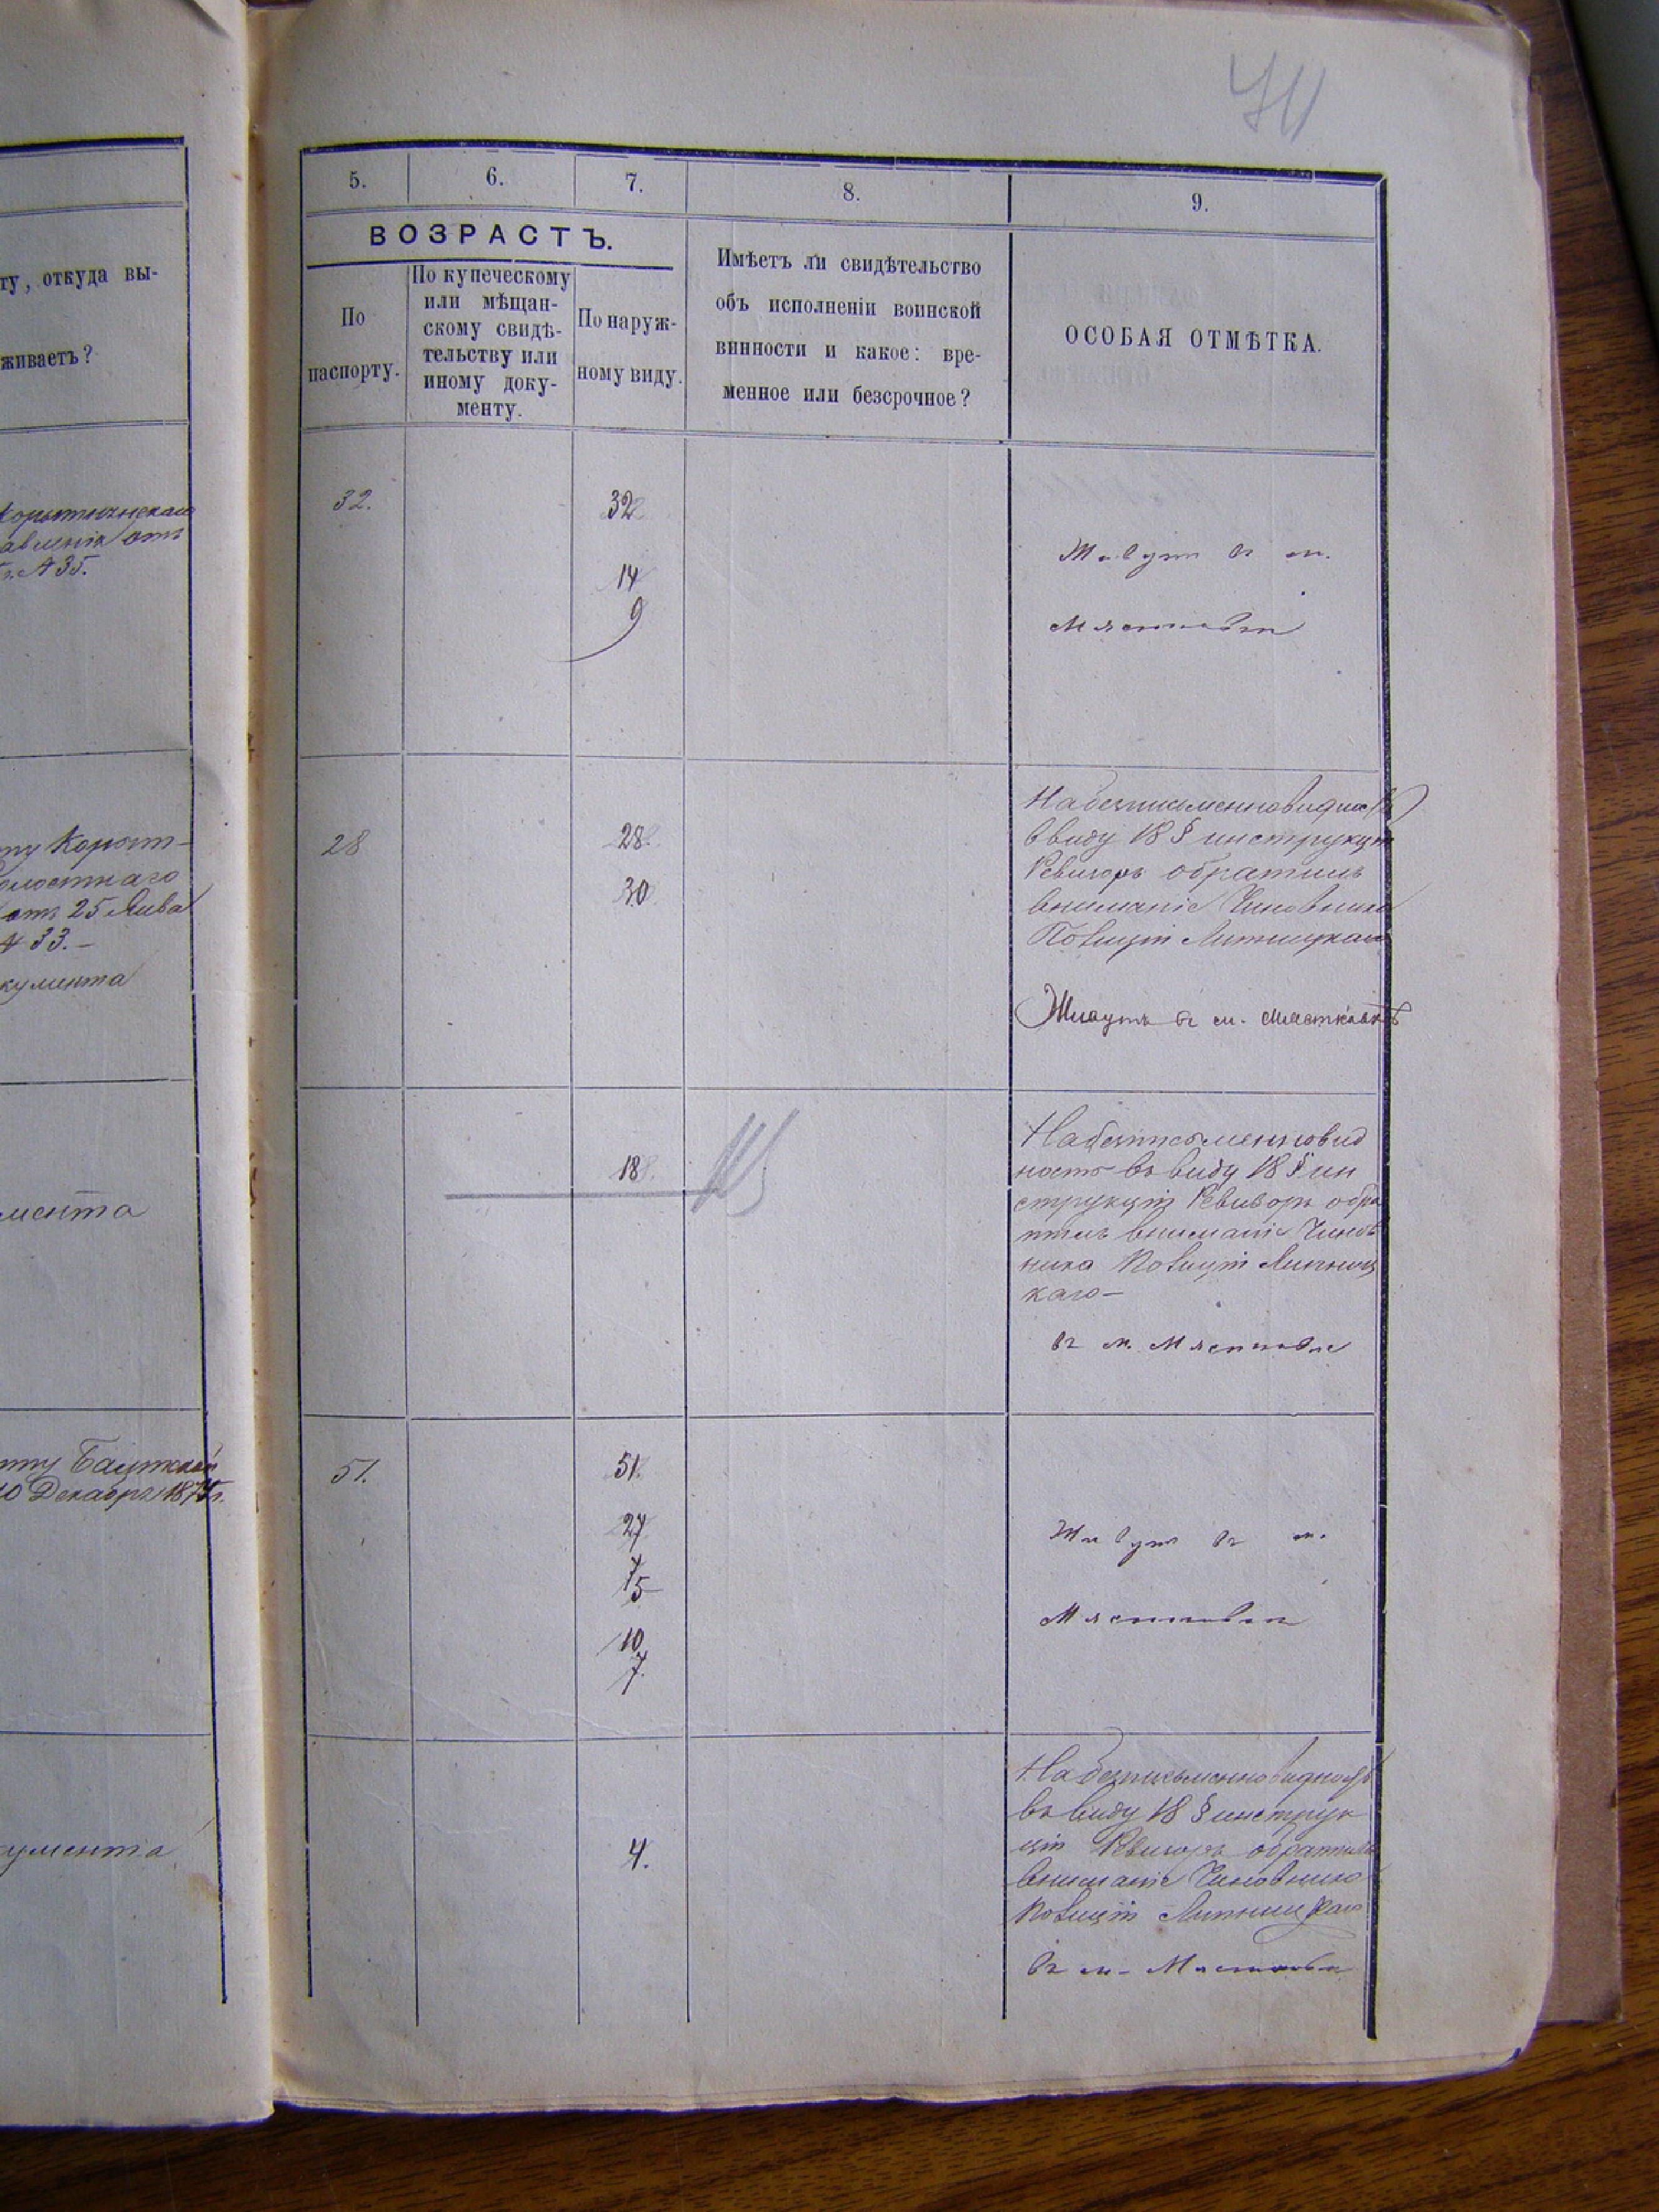 70
ту, откуда вы-
живаетъ?
авленія отъ
г. № 35.
ту Корыт-
олостнаго
отъ 25 Янва
№ 33.-
кумента
мента
ту Балтской
10 Декабря 187 г.
умента
5. 6. 7. 8. 9.
ВОЗРАСТЪ.
По
паспорту.
По купеческому
или мѣщан-
скому свидѣ-
тельству или
иному доку-
менту.
По наруж-
ному виду.
Имѣетъ ли свидѣтельство
объ исполненіи воинской
винности и какое: вре-
менное или безсрочное?
ОСОБАЯ ОТМѢТКА.
32. 32
14
9
Живутъ въ м.
Мястковкѣ
28 28.
30.
На безписьменновидность
ввиду 18 § инструкціи
Ревизоръ обратилъ
вниманіе Чиновника
Полиціи Липницкаго
Живутъ въ м. Мястковкѣ
18.
На безписьменновид
ность въ виду 18 § ин
струкціи Ревизоръ обра
тилъ вниманіе Чинов
ника Полиціи Липниц
каго-
въ м. Мястковкѣ
51. 51.
27.
15
10
7.
Живутъ въ м.
Мястковкѣ
4.
На безписьменновидность
въ виду 18 § инструк
ціи Ревизоръ обратилъ
вниманіе Чиновника
Полиціи Липницкаго
въ м- Мястковкѣ